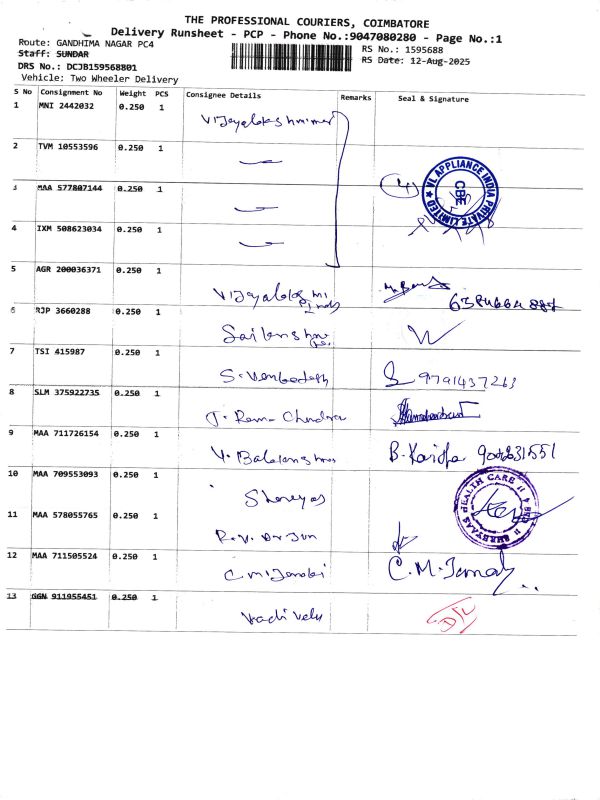 THE PROFESSIONAL COURIERS, COIMBATORE
Delivery Runsheet - PCP - Phone No.:9047080280 - Page No.:1
Route: GANDHIMA NAGAR PC4
RS No.: 1595688
Staff: SUNDAR
RS Date: 12-Aug-2025
DRS No.: DCJB159568801
Vehicle: Two Wheeler Delivery
S No Consignment No Weight PCS Consignee Details Remarks Seal & Signature
1 MNI 2442032 0.250 1
2 TVM 10553596 0.250 1
3 MAA 577807144 0.250 1
(4) VL APPLIANCE INDIA PRIVATE LIMITED ★ CBE
4 IXM 508623034 0.250 1
5 AGR 200036371 0.250 1
Vijayalakshmi
6384664887
6 RJP 3660288 0.250 1
7 TSI 415987 0.250 1
S. Venkadesh 9791437263
8 SLM 375922735 0.250 1
J. Rama Chandra
9 MAA 711726154 0.250 1
B. Kavitha
10 MAA 709553093 0.250 1
Shreyas
SHREYAAS HEALTH CARE
11 MAA 578055765 0.250 1
R.V. Arjun
12 MAA 711505524 0.250 1
C.M. Janaki
13 GGN 911955451 0.250 1
Vadivelu
D/L